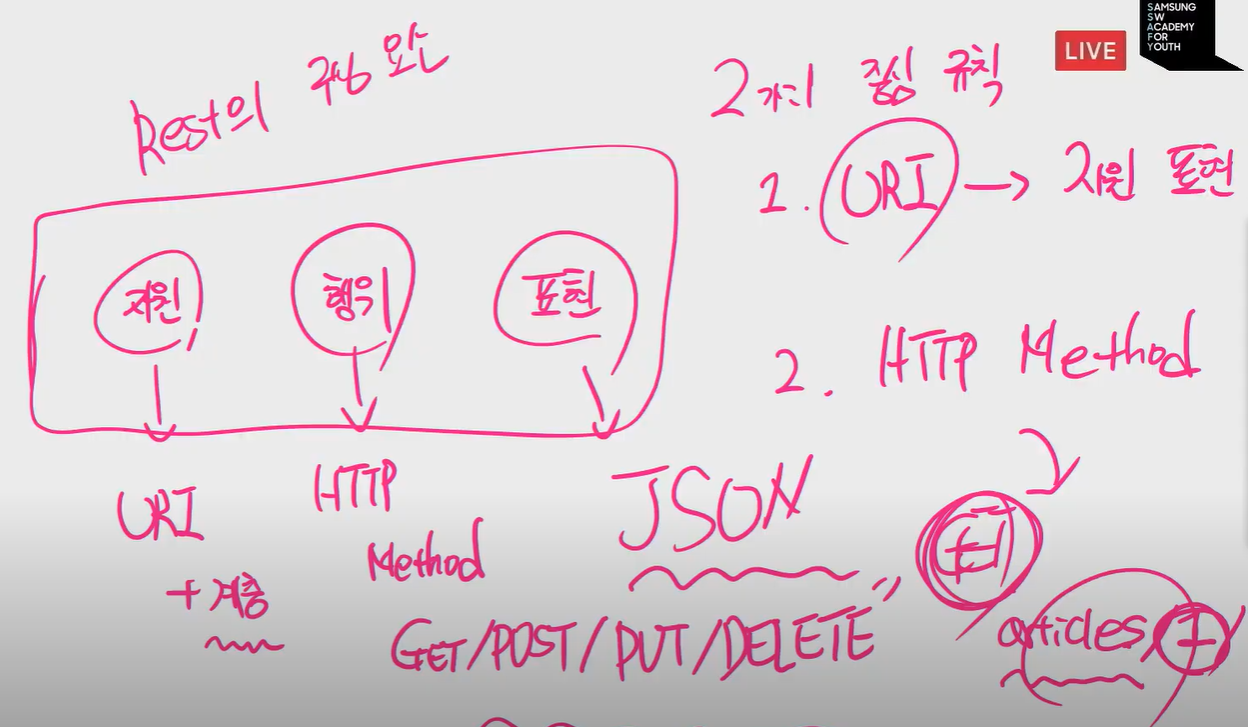 SAMSUNG
SW
ACADEMY
FOR
YOUTH
LIVE
Rest의 구성 요소
자원 행위 표현
URI
+ 계층
HTTP
Method
JSON
GET/POST/PUT/DELETE
2가지 중심 규칙
1. URI → 자원 표현
2. HTTP Method
articles/1